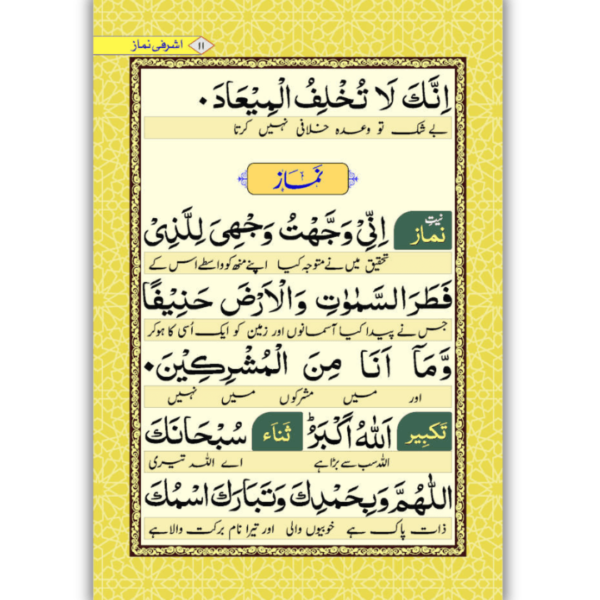 اشرفی نماز ۱۱
اِنَّكَ لَا تُخْلِفُ الْمِيْعَادَ۰
بے شک تو وعدہ خلافی نہیں کرتا
نَمَاز
نیتِ نماز اِنِّيْ وَجَّهْتُ وَجْهِيَ لِلَّذِيْ
تحقیق میں نے متوجہ کیا اپنے منھ کو واسطے اس کے
فَطَرَ السَّمٰوٰتِ وَالْاَرْضَ حَنِيْفًا
جس نے پیدا کیا آسمانوں اور زمین کو ایک اُسی کا ہو کر
وَّمَآ اَنَا مِنَ الْمُشْرِكِيْنَ۰
اور میں مشرکوں میں نہیں
تَکبِیر اَللّٰهُ اَکْبَرُ ثَنَاَء سُبْحَانَكَ
اللہ سب سے بڑا ہے اے اللہ تیری
اللّٰهُمَّ وَبِحَمْدِكَ وَتَبَارَكَ اسْمُكَ
ذات پاک ہے خوبیوں والی اور تیرا نام برکت والا ہے